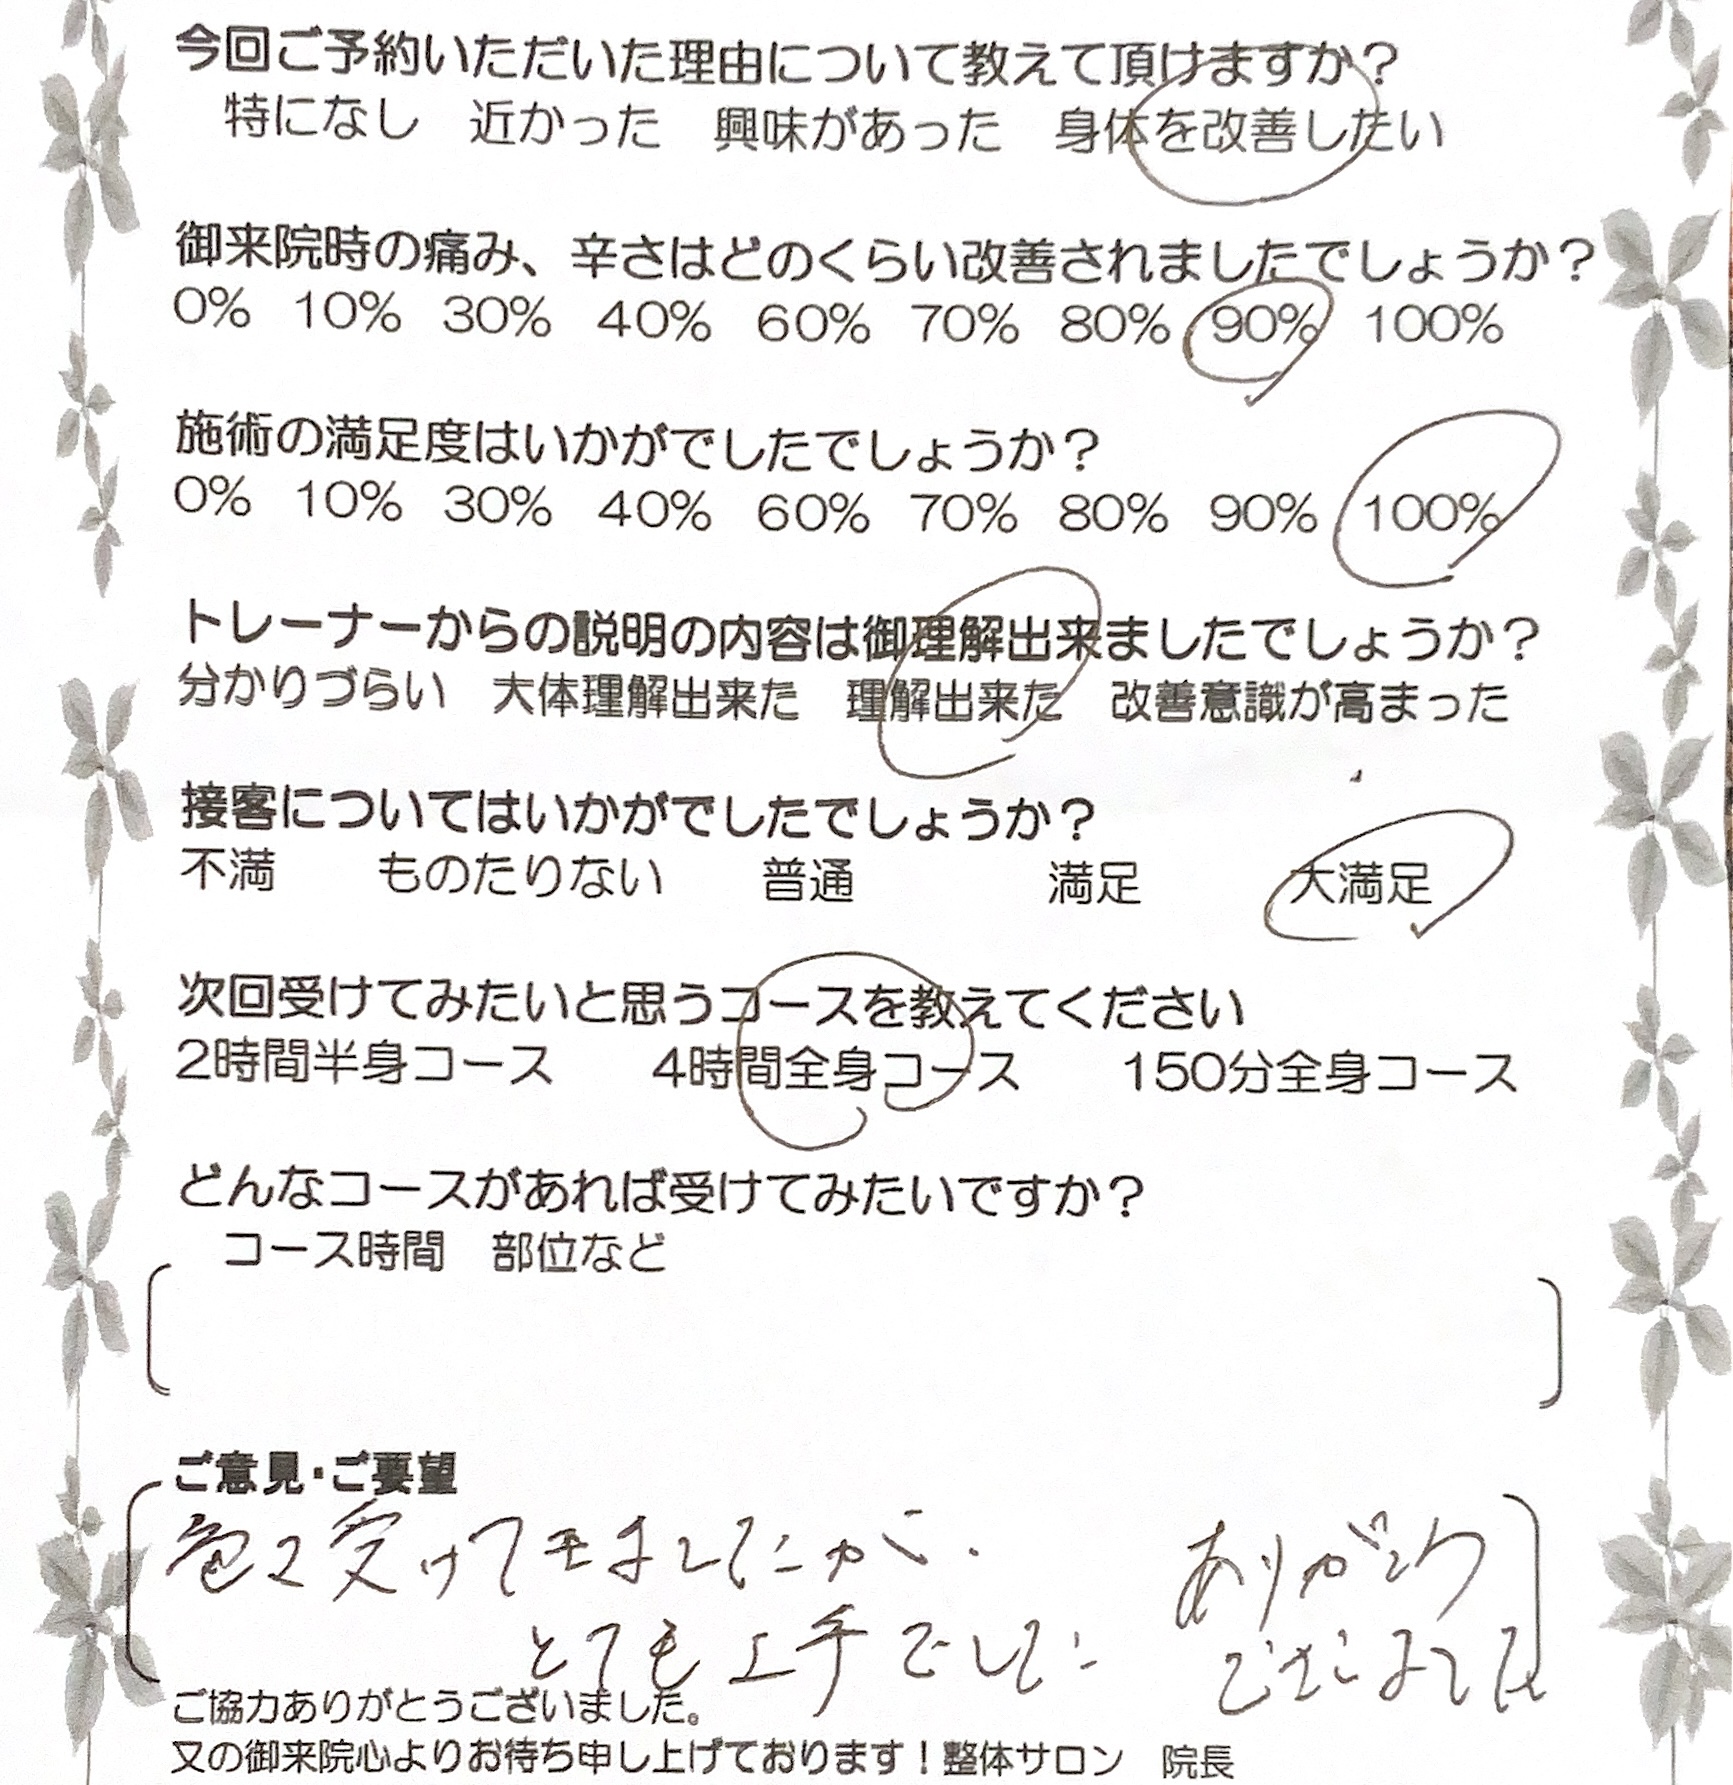 今回ご予約いただいた理由について教えて頂けますか？
特になし　近かった　興味があった　身体を改善したい
御来院時の痛み、辛さはどのくらい改善されましたでしょうか？
0%　10%　30%　40%　60%　70%　80%　90%　100%
施術の満足度はいかがでしたでしょうか？
0%　10%　30%　40%　60%　70%　80%　90%　100%
トレーナーからの説明の内容は御理解出来ましたでしょうか？
分かりづらい　大体理解出来た　理解出来た　改善意識が高まった
接客についてはいかがでしたでしょうか？
不満　ものたりない　普通　満足　大満足
次回受けてみたいと思うコースを教えてください
2時間半身コース　4時間全身コース　150分全身コース
どんなコースがあれば受けてみたいですか？
コース時間　部位など
ご意見・ご要望
色々受けてきましたが、
とても上手でした
ありがとう
ございました
ご協力ありがとうございました。
又の御来院心よりお待ち申し上げております！整体サロン　院長